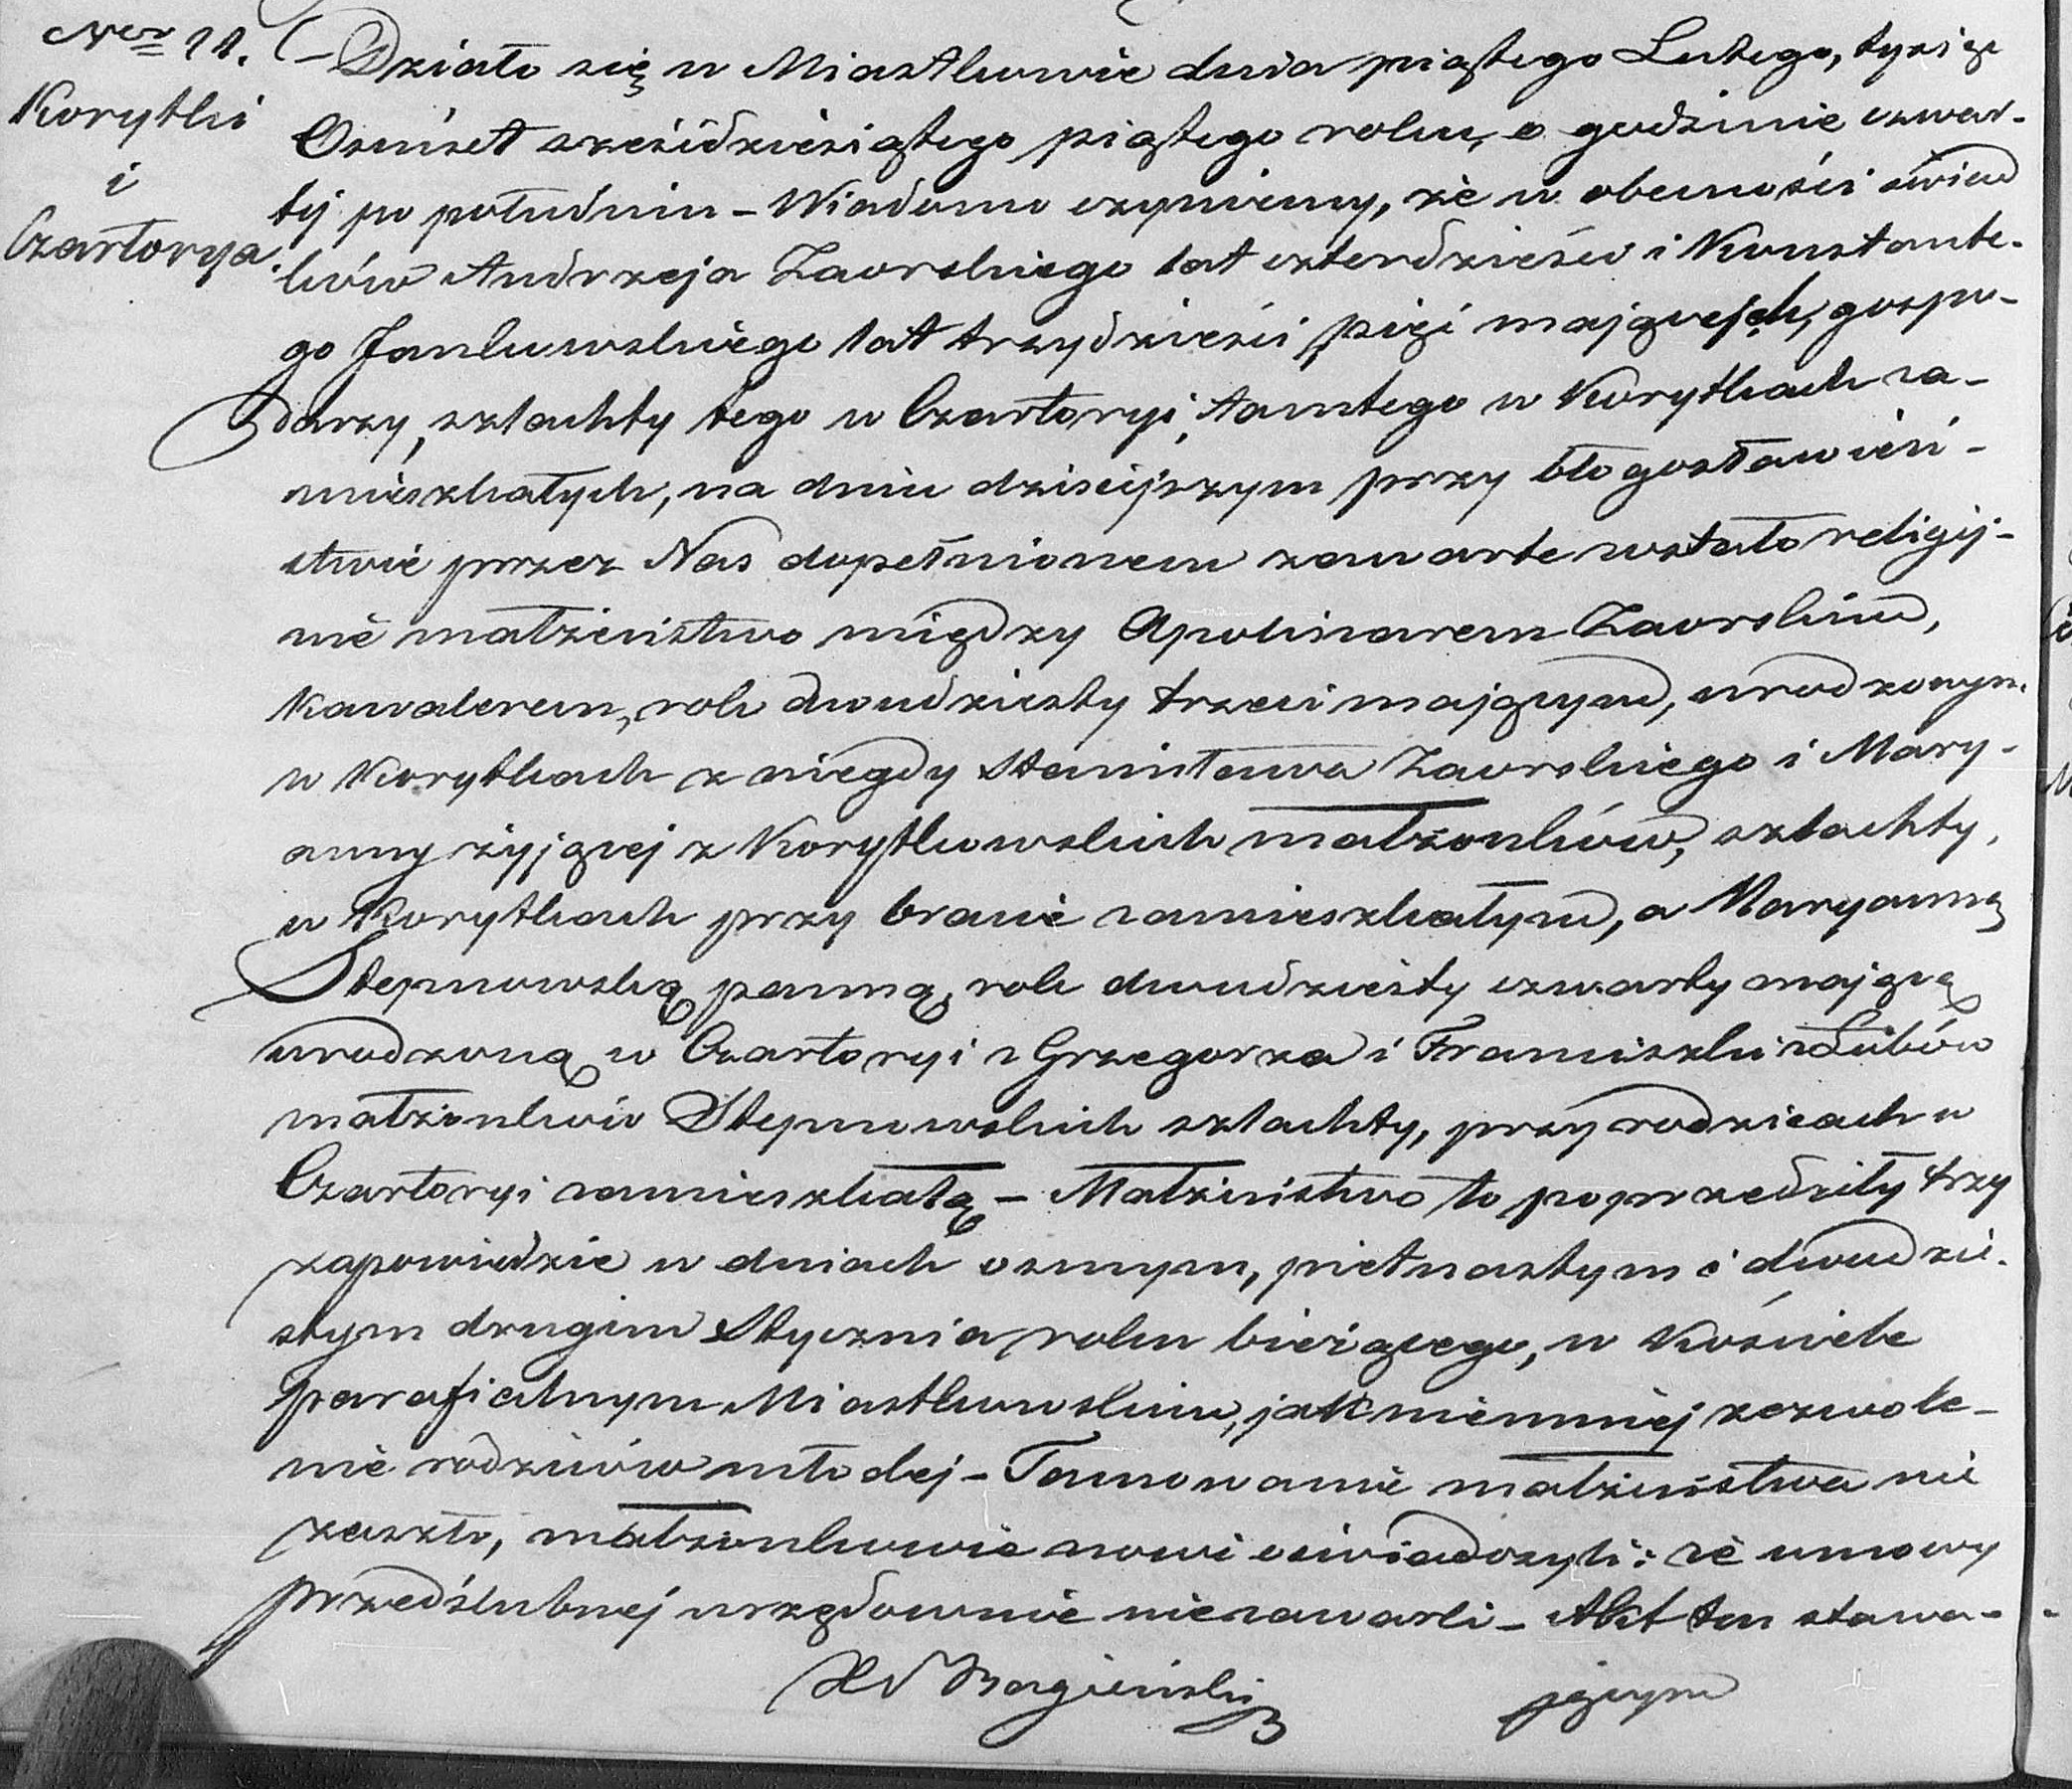 Ner 11.
Korytki
i
Czartorya.
Działo się w Miastkowie dnia piątego Lutego, tysiąc
Ośmset sześćdziesiątego piątego roku, o godzinie czwar-
tej po południu – Wiadomo czyniemy, że w obecności świad
ków Andrzeja Zaorskiego lat czterdzieści i Konstante-
go Jankowskiego lat trzydzieści pięć mających, gospo-
darzy, szlachty tego w Czartoryi, tamtego w Korytkach za-
mieszkałych, na dniu dzisiejszym przy błogosławień-
stwie przez Nas dopełnionem zawarte zostało religij-
nie małżeństwo między Apolinarem Zaorskim,
Kawalerem, rok dwudziesty trzeci mającym, urodzonym
w Korytkach z niegdy Stanisława Zaorskiego i Mary-
anny żyjącej z Korytkowskich małżonków, szlachty,
w Korytkach przy bracie zamieszkałym, a Maryanną
Stepnowską panną, rok dwudziesty czwarty mającą
urodzoną w Czartoryi z Grzegorza i Franciszki z Lubów
małżonków Stepnowskich szlachty, przy rodzicach w
Czartoryi zamieszkałą – Małżeństwo to poprzedziły trzy
zapowiedzie w dniach osmym, pietnastym i dwudzie-
stym drugim Stycznia, roku bieżącego, w Kościele
parafialnym Miastkowskim, jak niemniej zezwole-
nie rodziców młodej – Tamowanie małżeństwa nie
zaszło, małżonkowie nowi oświadczyli: że umowy
przedślubnej urzędownie niezawarli – Akt ten stawa-
jącym
X Bagieński